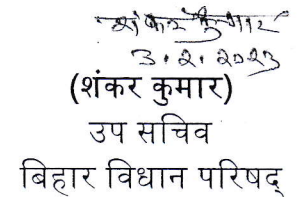 शंकर कुमार
3.2.2023
(शंकर कुमार)
उप सचिव
बिहार विधान परिषद्